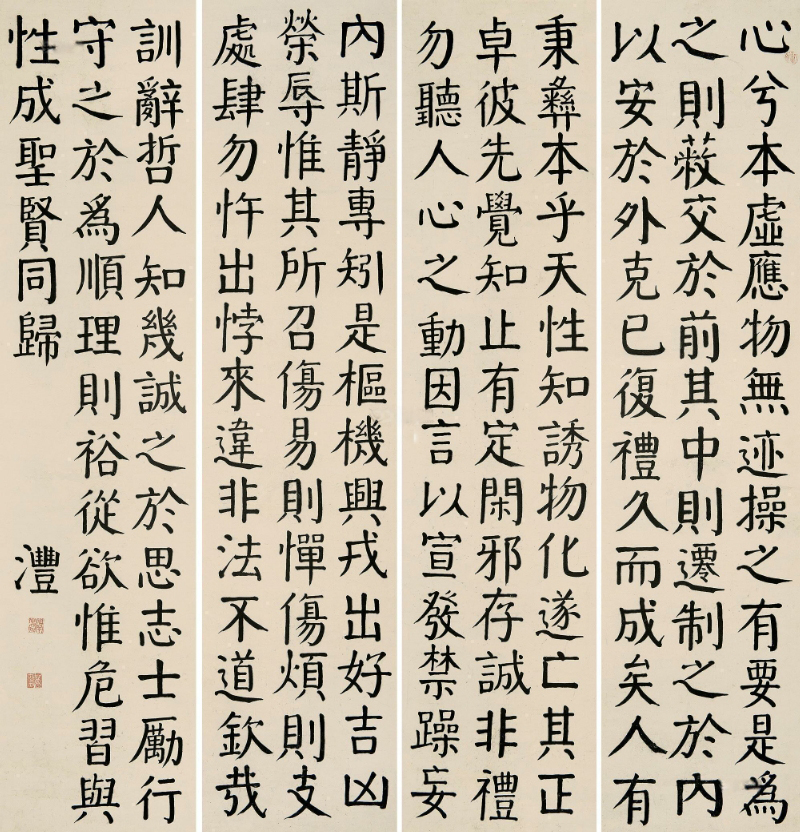 心兮本虛應物無迹操之有要是為
之則蔽交於前其中則遷制之於內
以安於外克己復禮久而成矣人有
秉彝本乎天性知誘物化遂亡其正
卓彼先覺知止有定閑邪存誠非禮
勿聽人心之動因言以宣發禁躁妄
內斯靜專矧是樞機興戎出好吉凶
榮辱惟其所召傷易則憚傷煩則支
處肆勿忤出悖來違非法不道欽哉
訓辭哲人知幾誠之於思志士勵行
守之於為順理則裕從欲惟危習與
性成聖賢同歸
灃